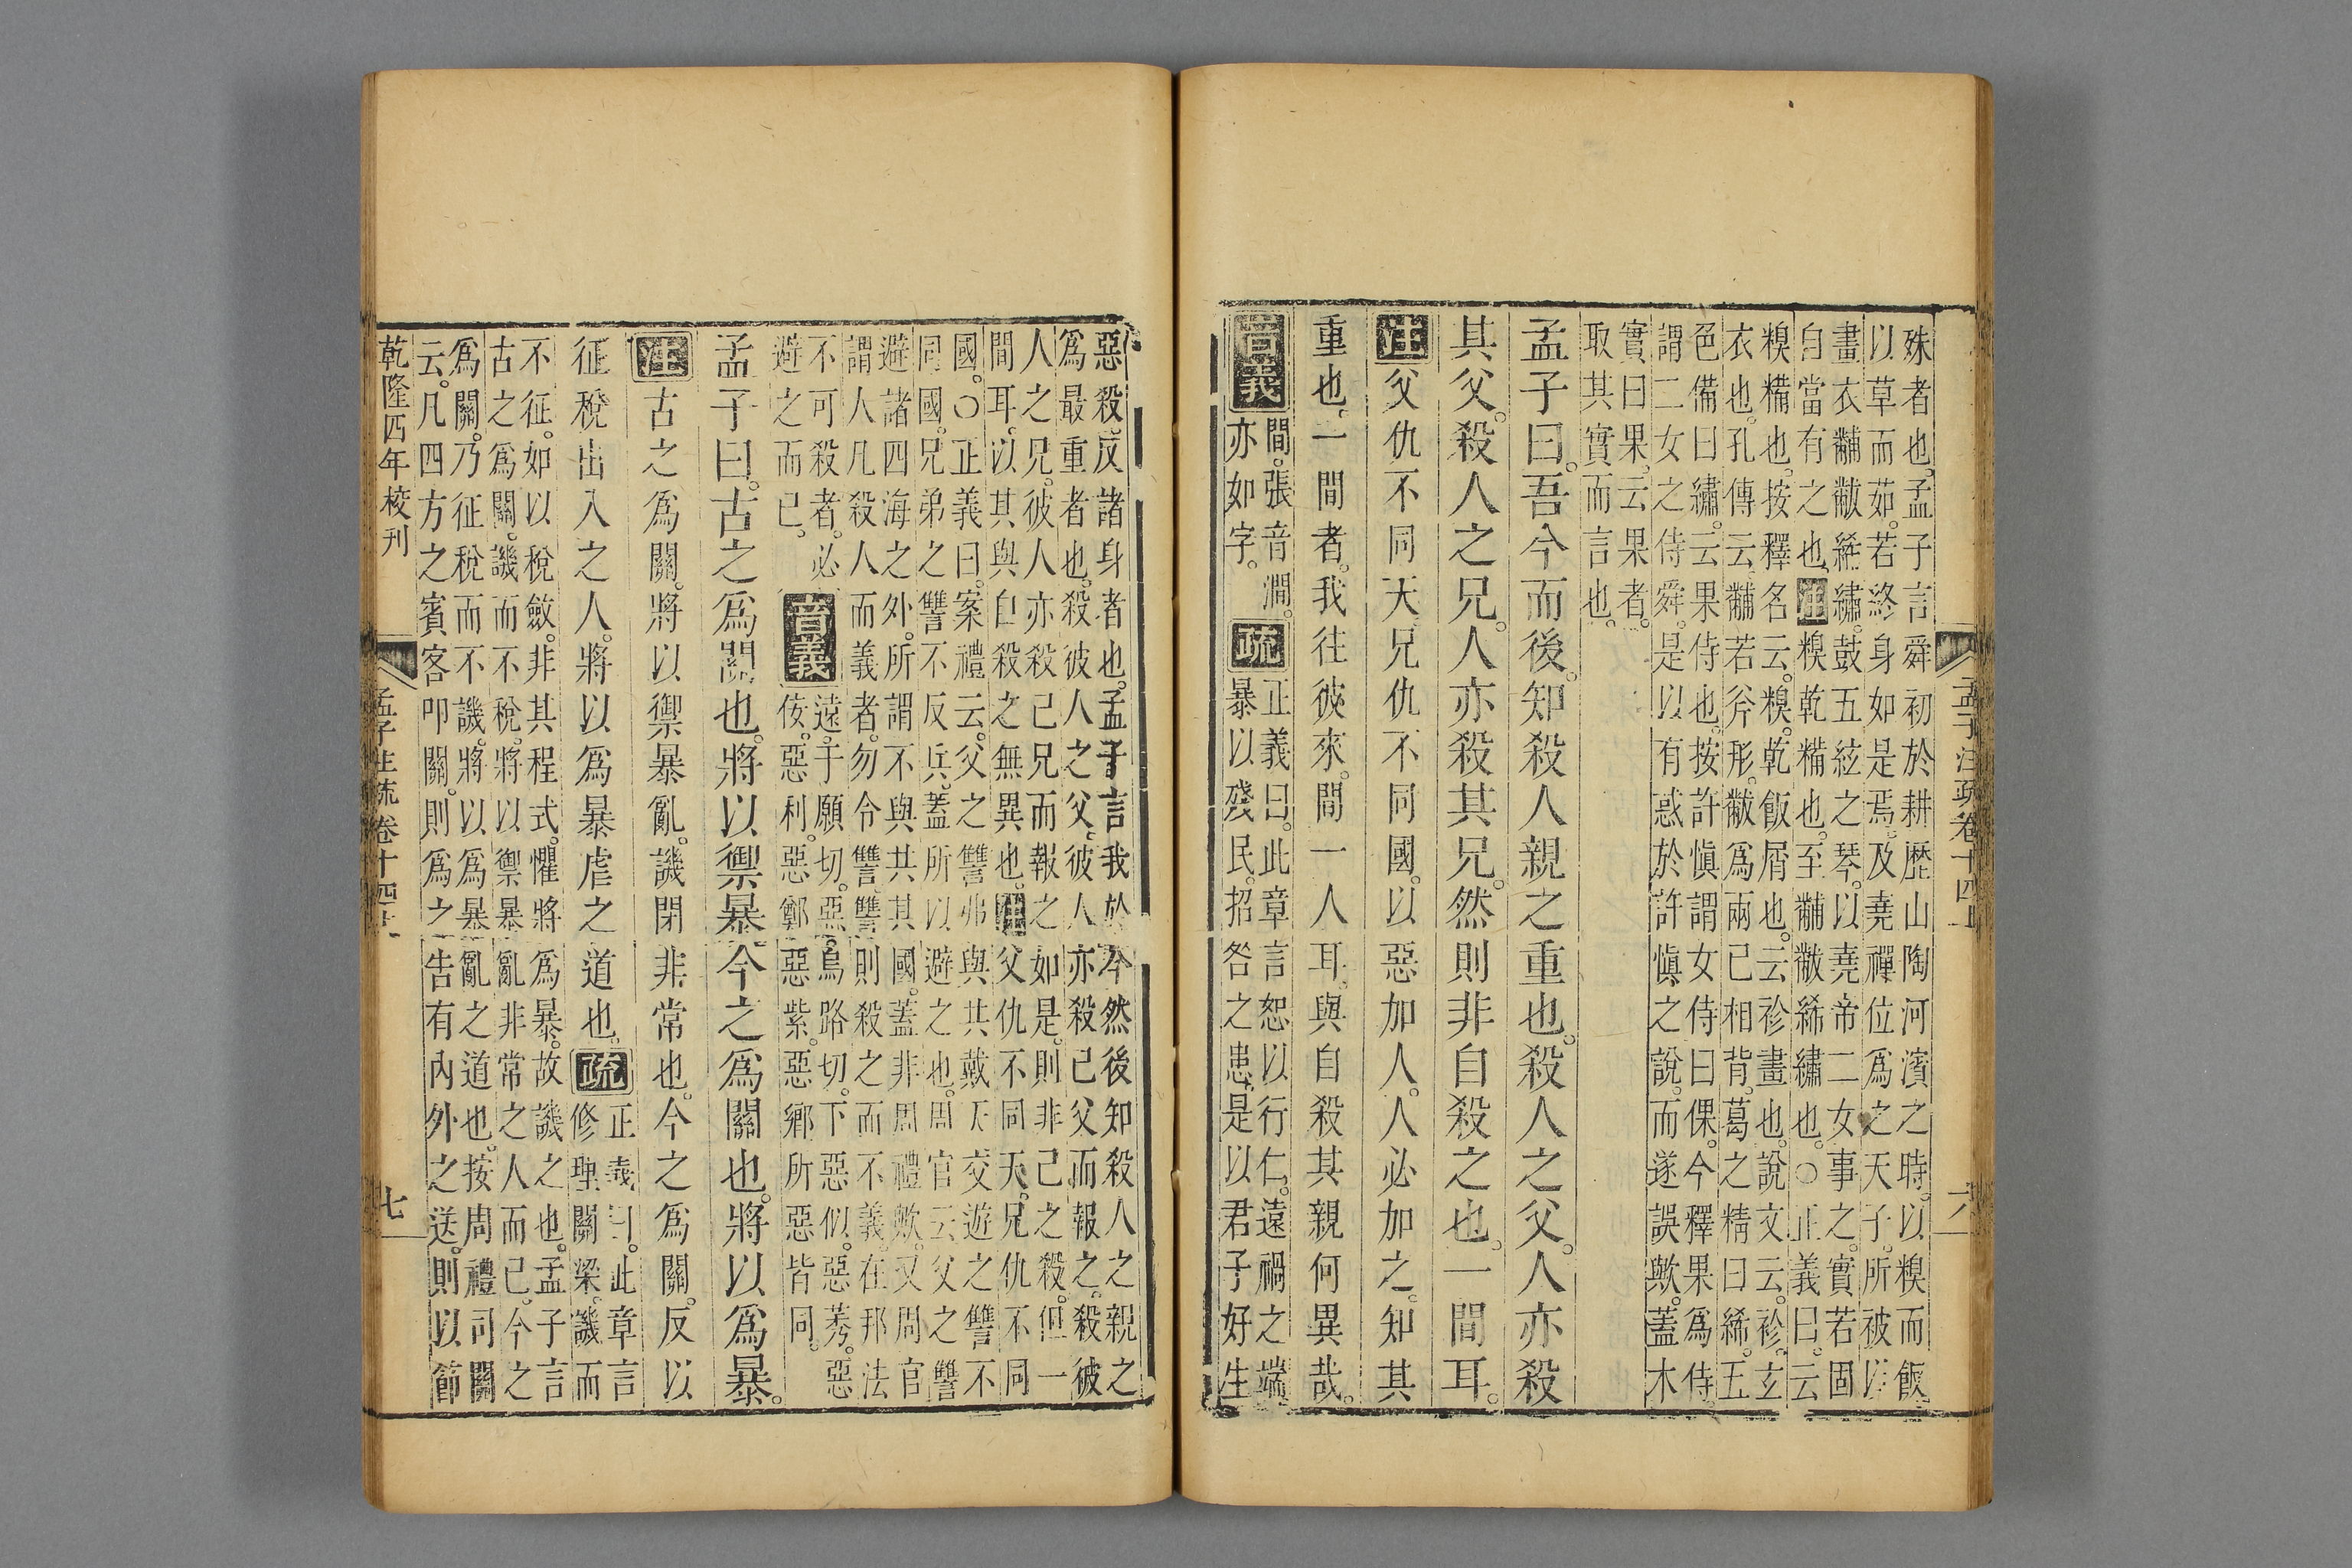 殊者也。孟子言舜初於耕歷山陶河濱之時。以糗而飯
以草而茹。若終身如是焉。及堯禪位爲之天子。所被以
畫衣黼黻絺繡。鼓五絃之琴。以堯帝二女事之。實若固
自當有之也。注糗乾糒也。至黼黻絺繡也。○正義曰。云
糗糒也。按釋名云。糗。乾飯屑也。云袗畫也。說文云。袗。玄
衣也。孔傳云。黼若斧形。黻爲兩已相背。葛之精曰絺。五
色備曰繡。云果侍也。按許慎謂女侍曰倮。今釋果爲侍
謂二女之侍舜。是以有惑於許慎之說。而遂誤歟。蓋木
實曰果。云果者。
取其實而言也。
孟子曰。吾今而後。知殺人親之重也。殺人之父。人亦殺
其父。殺人之兄。人亦殺其兄。然則非自殺之也。一間耳。
注父仇不同天。兄仇不同國。以惡加人。人必加之。知其
重也。一間者。我往彼來。間一人耳。與自殺其親何異哉。
音義間。張音澗。
亦如字。
疏正義曰。此章言恕以行仁。遠禍之端
暴以殘民。招咎之患。是以君子好生
孟子注疏卷十四上
六
惡殺。反諸身者也。孟子言我於今然後知殺人之親之
爲最重者也。殺彼人之父。彼人亦殺己父而報之。殺彼
人之兄。彼人亦殺己兄而報之。如是。則非己之殺。但一
間耳。以其與自殺之無異也。注父仇不同天。兄仇不同
國。○正義曰。案禮云。父之讐弗與共戴天。交遊之讐不
同國。兄弟之讐不反兵。蓋所以避之也。周官云父之讐
避諸四海之外。所謂不與共其國。蓋非周禮歟。又周官
謂人凡殺人而義者。勿令讐讐則殺之而不義。在邦法
不可殺者。必
避之而已。
音義遠。于願切。惡。烏路切。下惡似。惡莠。惡
佞。惡利。惡鄭惡紫。惡鄉所惡皆同。
孟子曰。古之爲關也。將以禦暴今之爲關也。將以爲暴。
注古之爲關。將以禦暴亂。譏閉非常也。今之爲關。反以
征稅出入之人。將以爲暴虐之道也。疏正義曰。此章言
修理關梁。譏而
不征。如以稅斂。非其程式。懼將爲暴。故譏之也。孟子言
古之爲關。譏而不稅。將以禦暴亂非常之人而已。今之
爲關。乃征稅而不譏。將以爲暴亂之道也。按周禮司關
云。凡四方之賓客叩關。則爲之告有內外之送。則以節
乾隆四年校刊
孟子注疏卷十四上
七